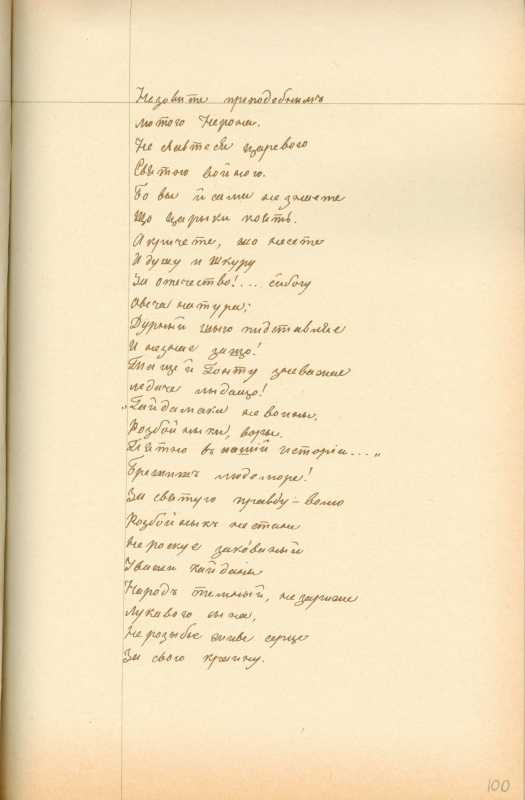 Незовите преподобнымъ
лютого Нерона.
Не славтеся царевою
Святою войною.
Бо вы й сами не знаете
Що царыки коятъ.
А кричете, що несете
И душу и шкуру
За отечество!... єйбогу
Овеча натура;
Дурный шыю підставляе
И незнае защо!
Та ще й Гонту зневажае
ледаче льдащо!
„Гайдамаки не воины,
Розбойныки, воры.
Пятно въ нашій исторіи...„
Брешишъ людоморе!
За святую правду-волю
Розбойныкъ не стане
Нероскуе закований
У ваши кайданы
Народъ темный, не заріже
Лукавого сына,
Нерозыбье живе серце
За свою краину.
100